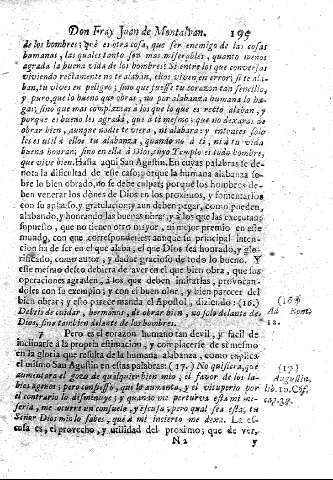 Don Fray Juan de Montalvan. 195
de los hombres; què es otra cosa, que ser enemigo de las cosas
humanas, las quales tanto son mas miserables, quanto menos
agrada la buena vida de los hombres? Si entre los que conversas
viviendo rectamente no te alaban, ellos viven en error; si te ala-
ban, tu vives en peligro; sino que fuesse tu corazon tan sencillo,
y puro, que lo bueno que obras, no por alabanza humana lo ha-
gas; sino que mas complazcas à los que lo que es recto alaban, y
porque es bueno les agrada, que à ti mesmo; que no dexaràs de
obrar bien, aunque nadie te viera, ni alabara: y entonces solo
les es util à ellos tu alabanza, quando no à ti, ni à tu vida
buena honran, sino en ella à Dios, cuyo Templo es todo hombre,
que vive bien. Hasta aqui San Agustin. En cuyas palabras se de-
nota la dificultad de este caso; porque la humana alabanza so-
bre lo bien obrado, no se debe culpar; porque los hombres de-
ben venerar los dones de Dios en los proximos, y fomentarlos
con su aplauso, y gratulacion; y aun deben pegar, como pueden
alabando, y honrando las buenas obras, y à los que las executan;
supuesto, que no tienen otro mayor, ni mejor premio en este
mundo, con que corresponderles: aunque su principal inten-
cion ha de ser en el que alaba, el que Dios sea honrado, y glo-
rificado, como autor, y dador gracioso de todo lo bueno. Y
esse mesmo deseo debiera de aver en el que bien obra, que las
operaciones agraden, à los que deben imitarlas, provocan-
doles con su exemplo; y con el buen oler, y bien parecer del
bien obrar; y esto parece manda el Apostol, diziendo: (16.)
Debeis de cuidar, hermanos, de obrar bien, no solo delante de
Dios, sino tambien delante de los hombres.
(16.)
Ad Rom.
12.
Pero es el corazon humano tan devil, y facil de
inclinarse à la propria estimacion, y complacerse de si mesmo
en la gloria que resulta de la humana alabanza, como explica
el mismo San Agustin en estas palabras: (17.) No quisiera, que
aumentara el gozo de qualquier bien mio, el favor de los la-
bios agenos: pero confiesso, que lo aumenta, y el vituperio por
el contrario lo disminuye; y quando me perturva esta mi mi-
seria, me ocurre un consuelo, y escusa; pero qual sea esta, tu
Señor Dios mio lo sabes, què à mi incierto me dexa. La es-
cusa es, el provecho, y utilidad del proximo; que de ver,
(17.)
Augustin.
lib. 10. Cõf.
cap. 39.
N 2 y